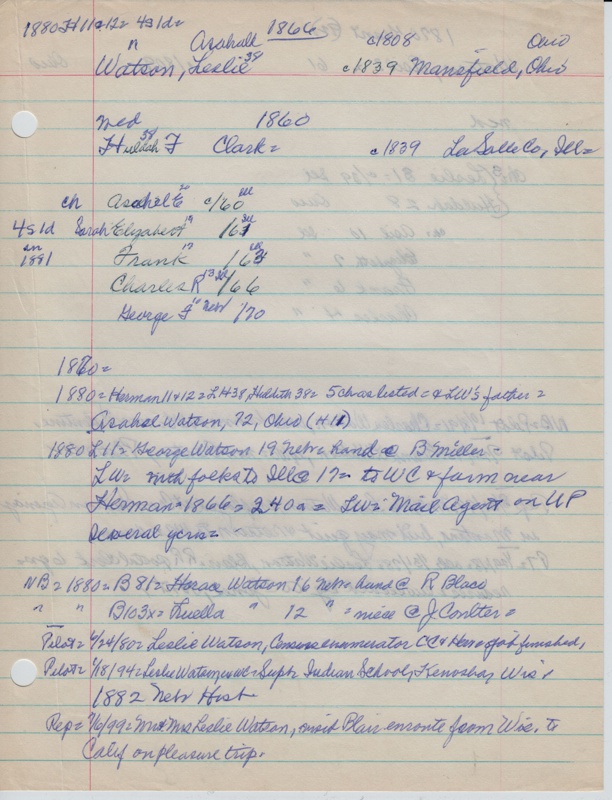 1880 H 11+12= 4s1d=
1866
n Asahall c1808 Ohio
Watson, Leslie 38 c1839 Mansfield, Ohio
med 1860
Huldah 38 F Clark= c1839 LaSalle Co, Ill=
ch Asahel E 20 c/60 Ill
4s1d Sarah Elizabeth 19
in
1881 Frank 17
Charles R 13 /66
George F 10 Nebr /70
1860=
1880= Herman 11+12= L H38, Huldith 38= 5 chn listed= + LW's father=
Asahel Watson, 72, Ohio (H11)
1880 L11= George Watson 19 Nebr= hand @ B Miller=
LW= with folks to Ill @ 17= to WC + farm near
Herman= 1866= 240a= LW= Mail Agent on UP
several years=
NB= 1880= B81= Horace Watson 16 Nebr hand @ R Blaco
" " B103x= Luella " 12 " = niece @ J Coulter=
Pilot= 6/24/80= Leslie Watson, Census enumerator CC + Herm job finished,
Pilot= 1/18/94= Leslie Watson = Supt Indian School, Kenosha, Wis+
1882 Nebr Hist
Rep= 7/6/99= Mr + Mrs Leslie Watson, visit Blair enroute from Wis. to
Calif on pleasure trip.